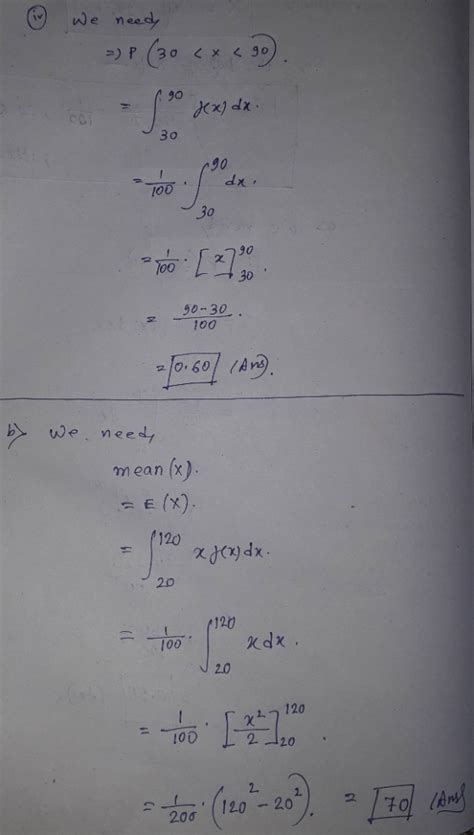 (iv) We need,
=> P (30 < x < 90).
= ∫₃₀⁹⁰ f(x) dx.
= 1/100 · ∫₃₀⁹⁰ dx.
= 1/100 · [x]₃₀⁹⁰.
= (90-30)/100 .
= 0.60 (Ans).
b) We need,
mean (x).
= E (X).
= ∫₂₀¹²⁰ x f(x) dx.
= 1/100 · ∫₂₀¹²⁰ x dx.
= 1/100 · [x²/2]₂₀¹²⁰.
= 1/200 · (120² - 20²). = 70 (Ans)